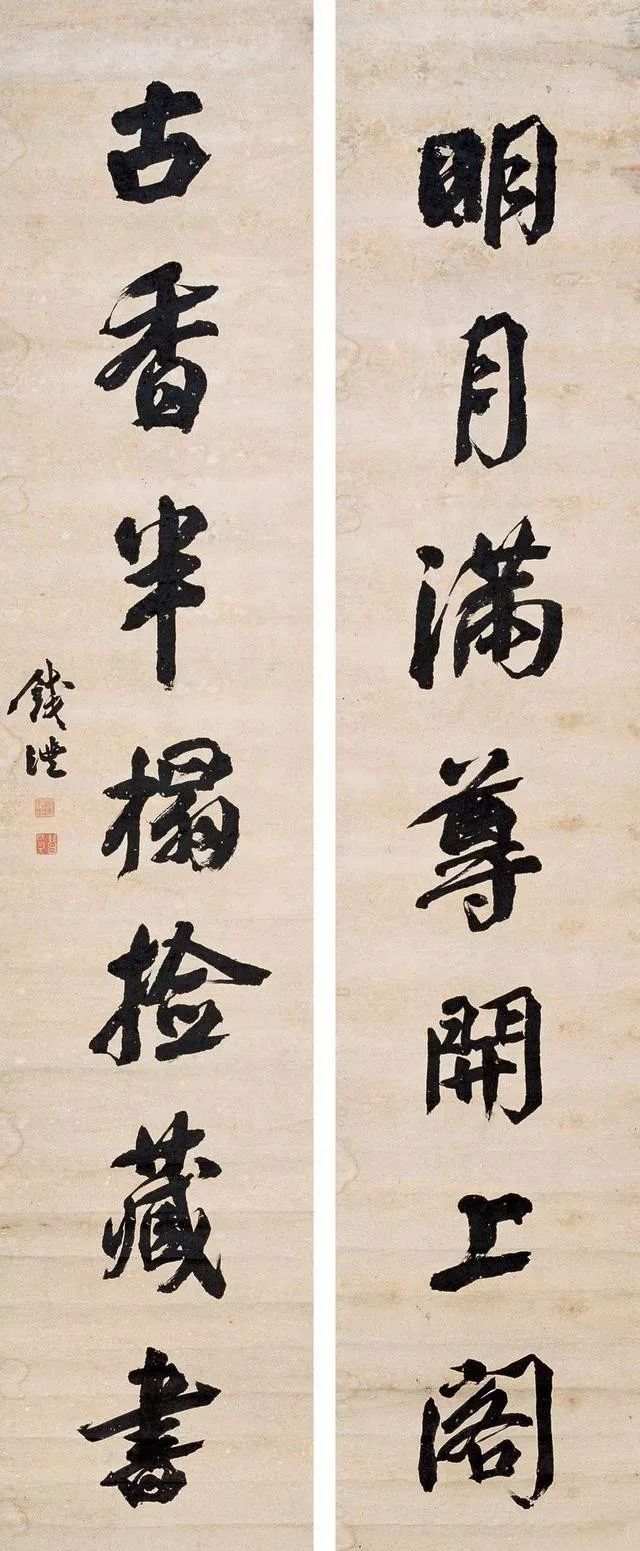 明月滿尊開上閣
古香半榻捡藏書
錢灃